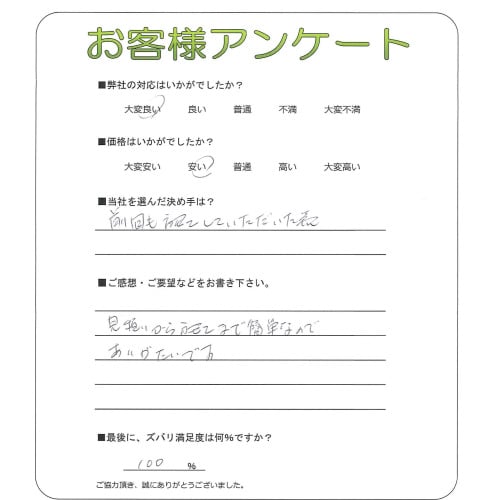 お客様アンケート
■弊社の対応はいかがでしたか？
大変良い 良い 普通 不満 大変不満
■価格はいかがでしたか？
大変安い 安い 普通 高い 大変高い
■当社を選んだ決め手は？
前回も施工していただいた為
■ご感想・ご要望などをお書き下さい。
見積りから施工まで簡単なので
ありがたいです
■最後に、ズバリ満足度は何％ですか？
100 ％
ご協力頂き、誠にありがとうございました。